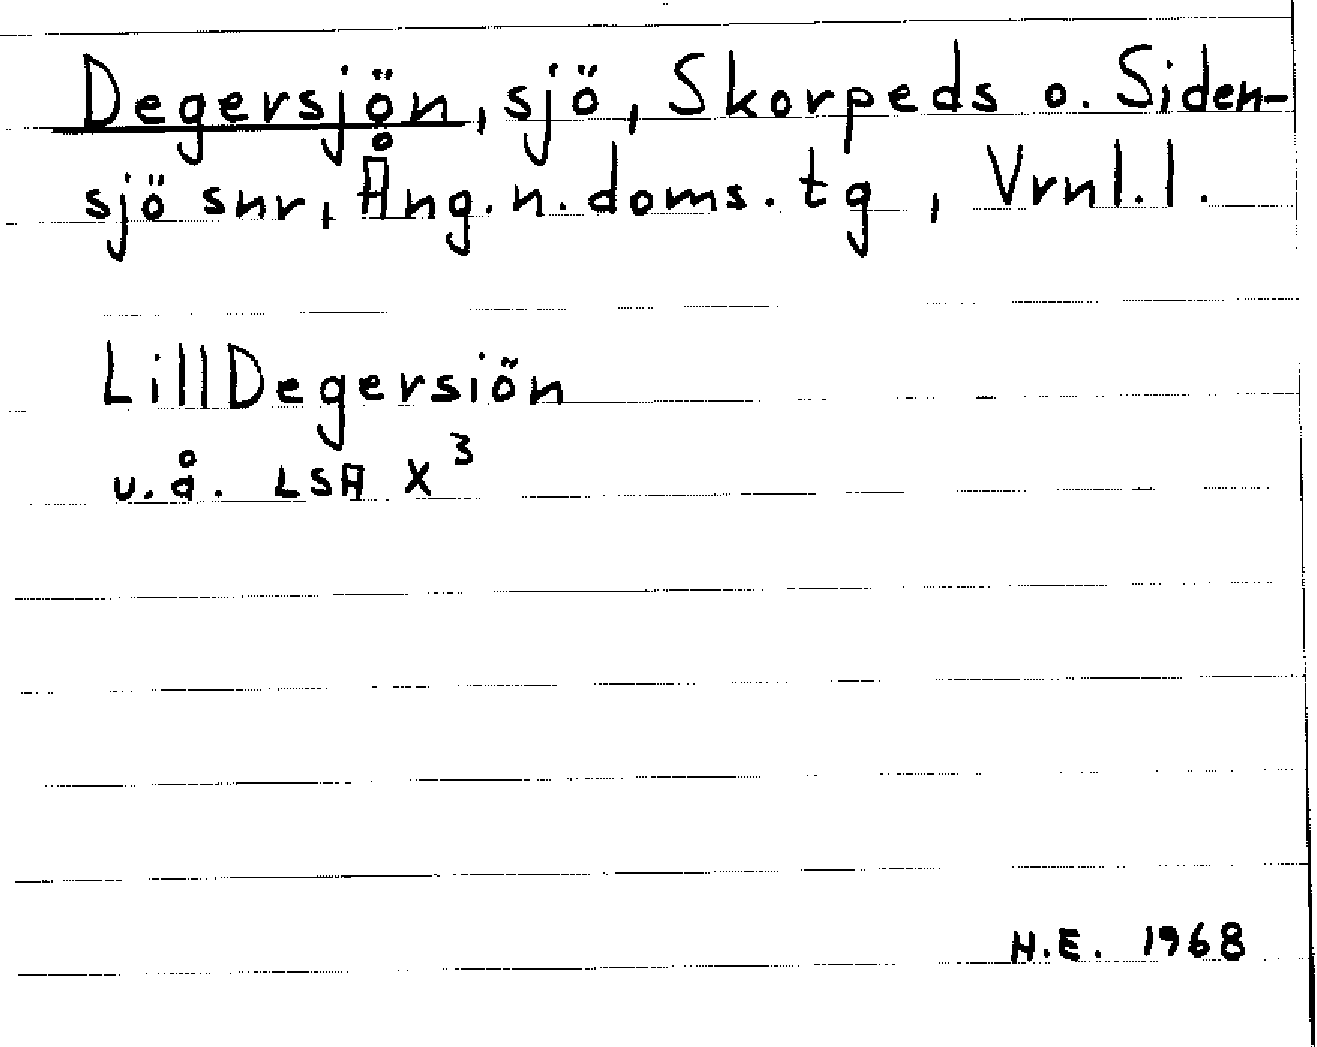 Degersjön, sjö, Skorpeds o. Siden-
sjö snr, Ång. n. doms. tg, Vrnl. l.
LillDegersiön
u.å. LSA X³
H.E. 1968